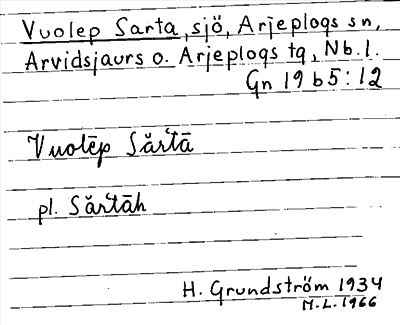 Vuolep Sarta, sjö, Arjeplogs sn,
Arvidsjaurs o. Arjeplogs tg, Nb. l.
Gn 19 b5:12
Vuolēp Sărʻtā
pl. Sărʻtāh
H. Grundström 1934
M.L. 1966